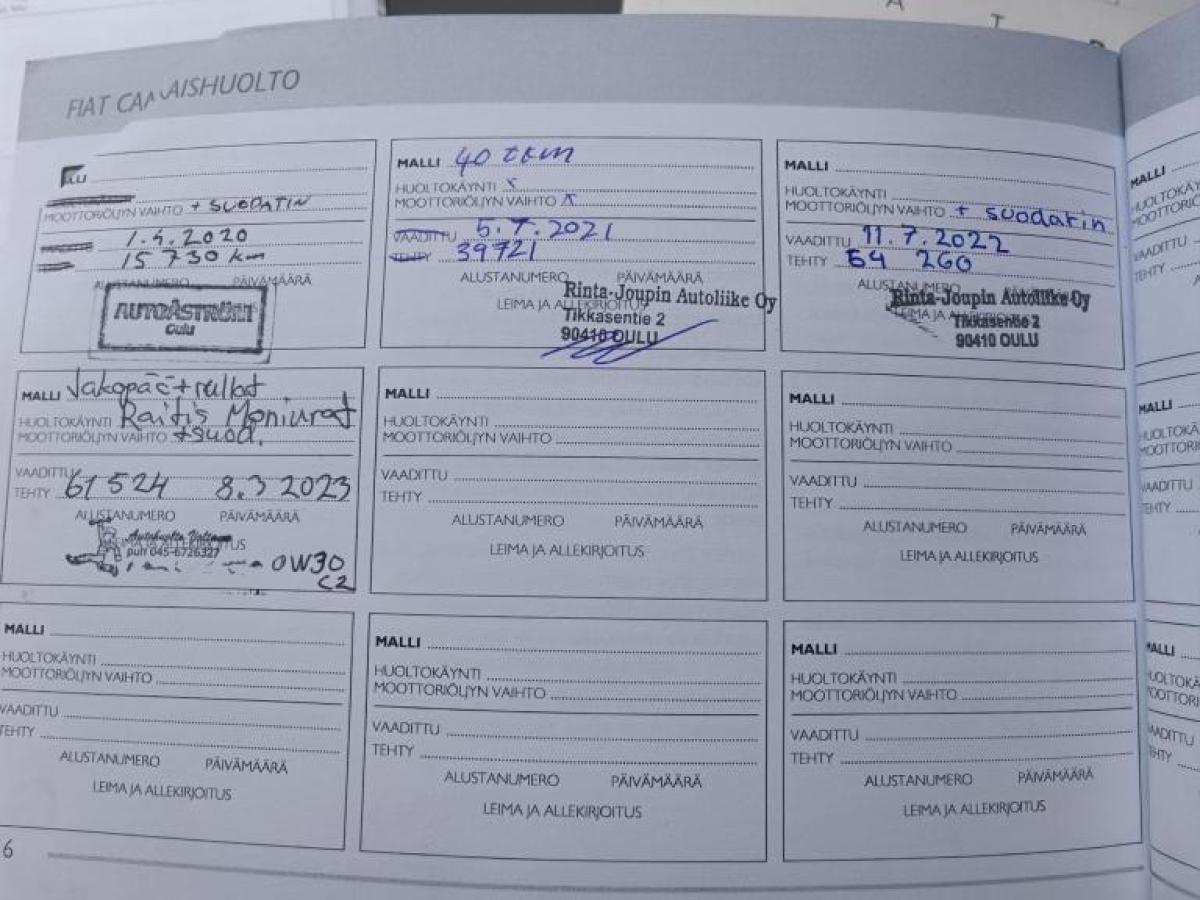 FIAT CA AISHUOLTO
MOOTTORIÖLJYN VAIHTO + SUODATIN
1.4.2020
15 730 km
ALUSTANUMERO PÄIVÄMÄÄRÄ
AUTOÅSTRÖM
Oulu
MALLI 40 tkm
HUOLTOKÄYNTI x
MOOTTORIÖLJYN VAIHTO x
VAADITTU 5.7.2021
TEHTY 39721
ALUSTANUMERO PÄIVÄMÄÄRÄ
LEIMA JA ALLEKIRJOITUS
Rinta-Joupin Autoliike Oy
Tikkasentie 2
90410 OULU
MALLI
HUOLTOKÄYNTI
MOOTTORIÖLJYN VAIHTO + suodatin
VAADITTU 11.7.2022
TEHTY 54 260
ALUSTANUMERO PÄIVÄMÄÄRÄ
LEIMA JA ALLEKIRJOITUS
Rinta-Joupin Autoliike Oy
Tikkasentie 2
90410 OULU
MALLI Jakopää + rullat
HUOLTOKÄYNTI Raitis Moniurat
MOOTTORIÖLJYN VAIHTO +suod.
VAADITTU
TEHTY 61 524 8.3 2023
ALUSTANUMERO PÄIVÄMÄÄRÄ
Autohuolto
puh 045-6726327
0W30
C2
MALLI
HUOLTOKÄYNTI
MOOTTORIÖLJYN VAIHTO
VAADITTU
TEHTY
ALUSTANUMERO PÄIVÄMÄÄRÄ
LEIMA JA ALLEKIRJOITUS
MALLI
HUOLTOKÄYNTI
MOOTTORIÖLJYN VAIHTO
VAADITTU
TEHTY
ALUSTANUMERO PÄIVÄMÄÄRÄ
LEIMA JA ALLEKIRJOITUS
MALLI
HUOLTOKÄYNTI
MOOTTORIÖLJYN VAIHTO
VAADITTU
TEHTY
ALUSTANUMERO PÄIVÄMÄÄRÄ
LEIMA JA ALLEKIRJOITUS
MALLI
HUOLTOKÄYNTI
MOOTTORIÖLJYN VAIHTO
VAADITTU
TEHTY
ALUSTANUMERO PÄIVÄMÄÄRÄ
LEIMA JA ALLEKIRJOITUS
MALLI
HUOLTOKÄYNTI
MOOTTORIÖLJYN VAIHTO
VAADITTU
TEHTY
ALUSTANUMERO PÄIVÄMÄÄRÄ
LEIMA JA ALLEKIRJOITUS
6